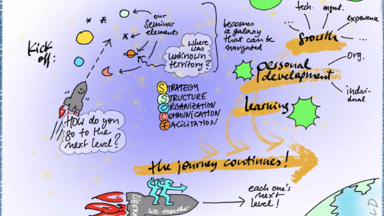 Kick
off:
our
Seminar
elements
becomes
a galaxy
that can be
navigated
Where
was
unknown
territory?
How do you
go to the
next level?
STRATEGY
STRUCTURE
ORGANIZATION
COMMUNICATION
FACILITATION
tech.
mgmt.
experience
Growth
Org.
personal
development
individual
learning
the journey continues!
We together
each one's
next
level!